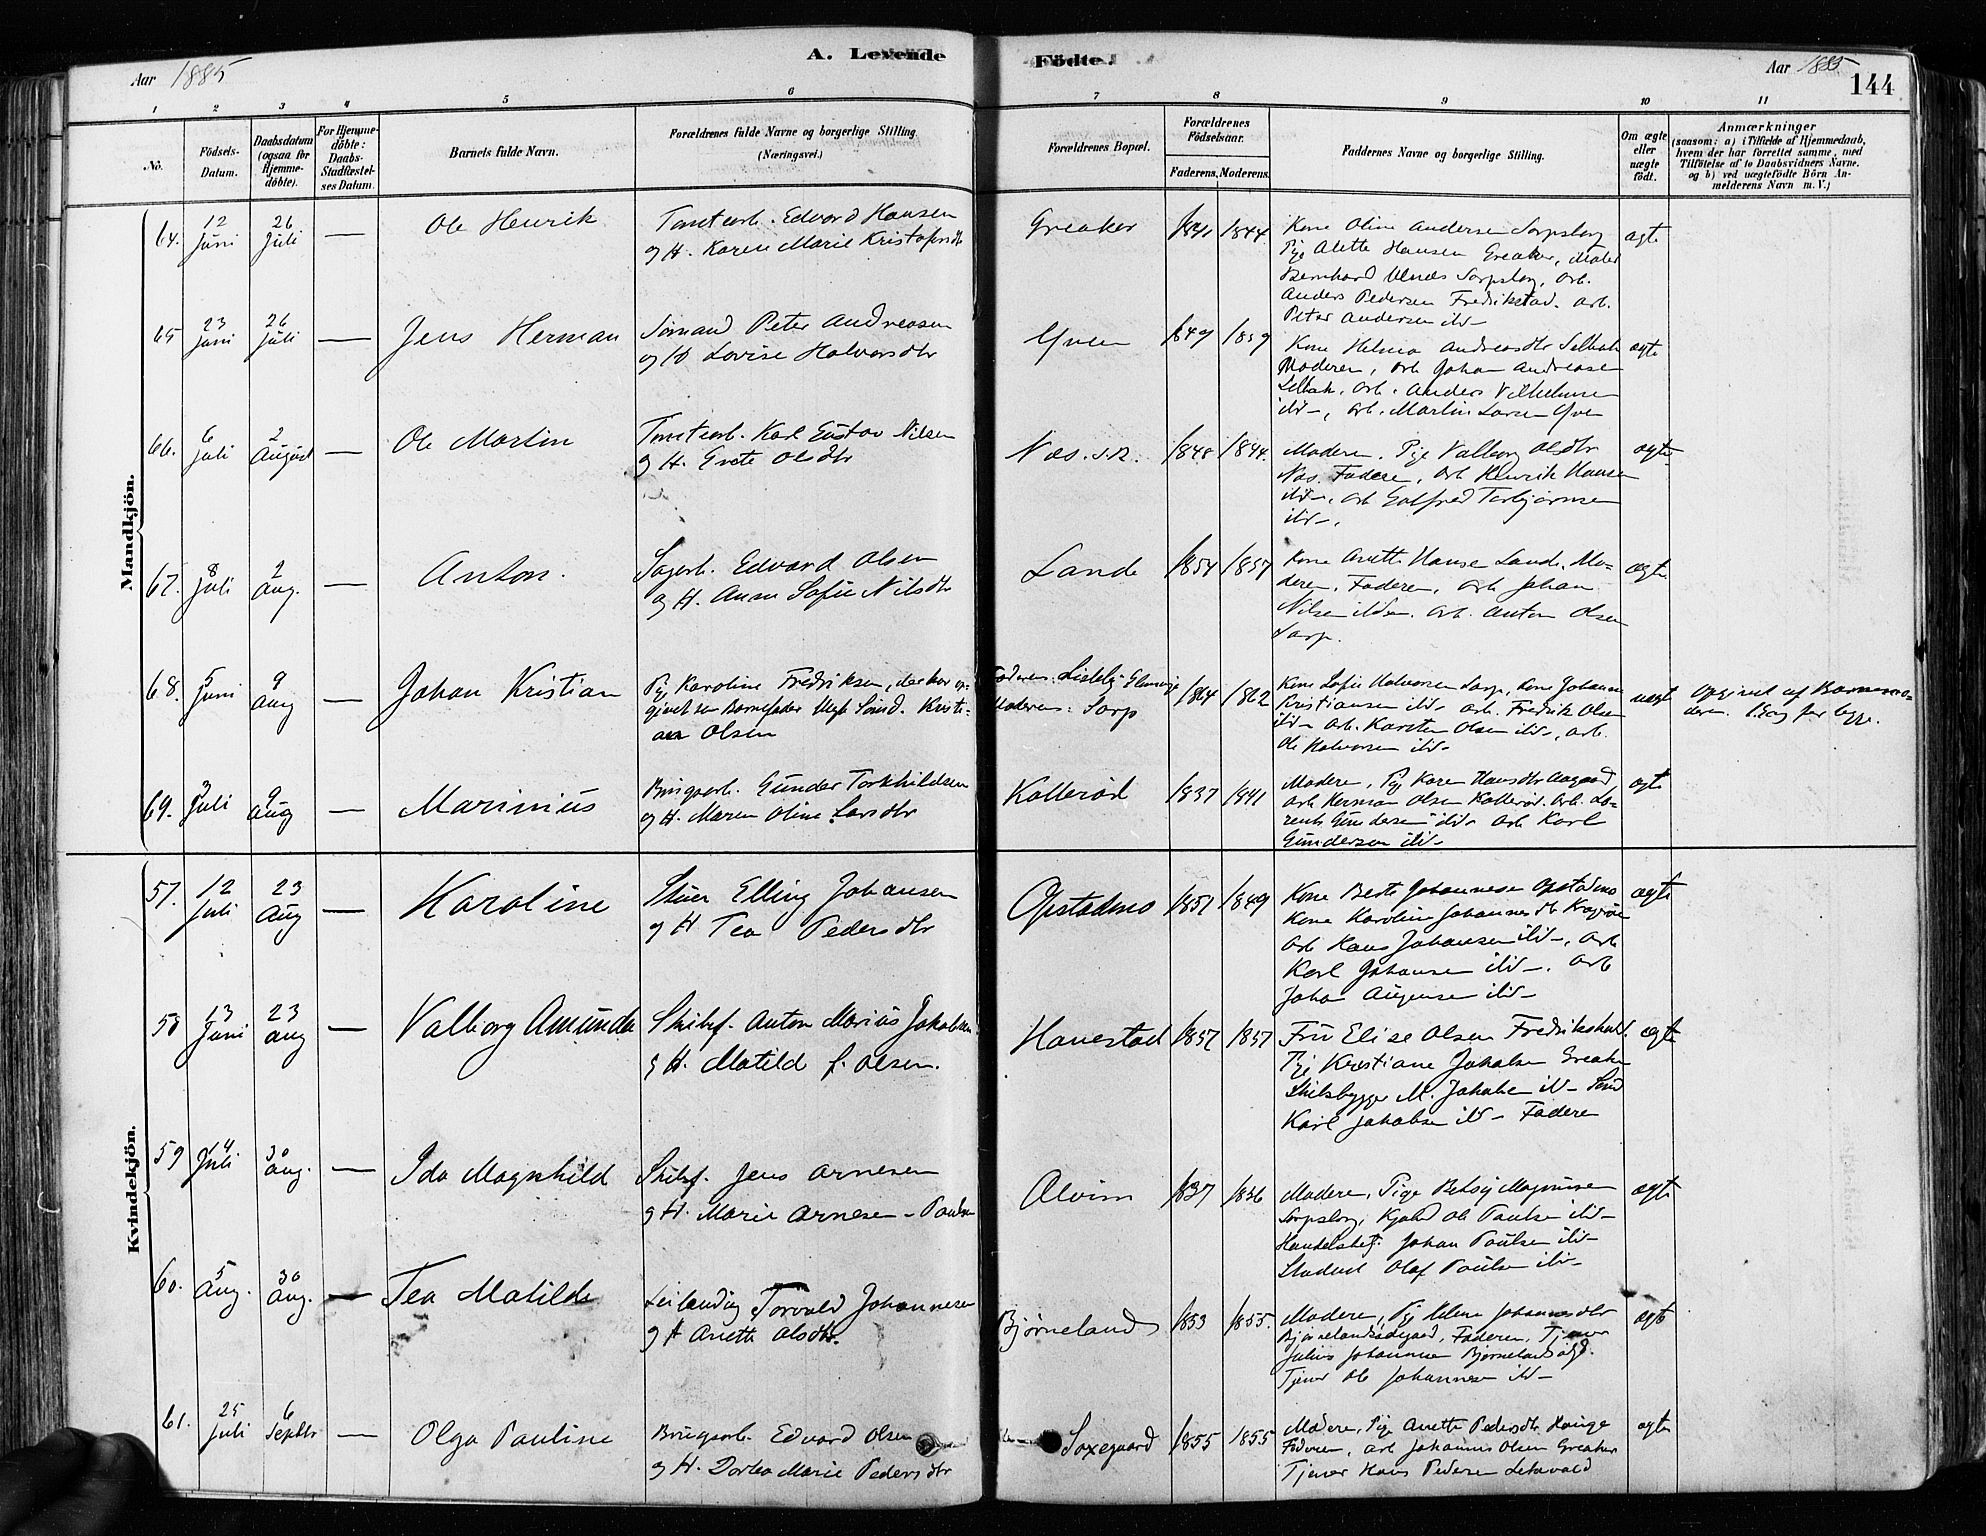 Aar 1885
A. Levende
Födte.
Aar 1885
144
1 2 3 4 5 6 7 8 9 10 11
No.
Födsels-
Datum.
Daabsdatum
(ogsaa for
Hjemme-
döbte).
For Hjemme-
döbte:
Daabs-
Stadfæstel-
ses Datum.
Barnets fulde Navn.
Forældrenes fulde Navne og borgerlige Stilling.
(Næringsvei.)
Forældrenes Bopæl.
Forældrenes
Födselsaar.
Faderens. Moderens.
Faddernes Navne og borgerlige Stilling.
Om ægte
eller
uægte
födt.
Anmærkninger
(saasom: a) i Tilfælde af Hjemmedaab,
hvem der har forrettet samme, med
Tilföielse af to Daabsvidners Navne.
og b) ved uægtefödte Börn An-
melderens Navn m. V.)
Mandkjön.
64. 12 Juni 26 Juli — Ole Henrik
Tomtearb. Edvard Hansen
og H. Karen Marie Kristofersdtr
Greaker 1841 1844
Kone Oline Andersen Sarpsborg
Pige Alette Hansen Greaker, Maler
Bernhard Ulnæs Sarpsborg, Arb.
Anders Pedersen Fredrikstad. Arb.
Peter Andersen ibd—
ægte
65 23 Juni 26 Juli — Jens Herman
Sømand Peter Andreasen
og H Lovise Halvorsdtr
Yven 1849 1859
Kone Helma Andreasdtr Selbak
Moderen, Arb Johan Andreasen
Selbak, Arb. Anders Vilhelmsen
ibd—, Arb. Martin Larsen Yven
ægte
66. 6 Juli 2 August — Ole Martin
Tomtearb. Karl Gustav Nilsen
og H. Grete Olsdtr
Næs. 1848 1844.
Moderen, Pige Valborg Olsdtr
Næs. Faderen, Arb Henrik Hansen
ibd—, Arb Gotfred Torbjørnsen
ibd—.
ægte
67. 8 Juli 2 Aug. — Anton.
Sagarb. Edvard Olsen
og H. Anna Sofie Nilsdtr
Lande 1854 1857
Kone Anette Hansen Lande. Mo-
deren. Faderen, Arb Johan
Nilsen ibd. Arb. Anton Olsen
Sarp.
ægte
68. 5 Juni 9 Aug — Johan Kristian
Pige Karoline Fredriksen, der har op-
givet som Barnefader Ungk. Sømd. Kristi-
an Olsen
Faderens: Lisleby
Moderens: Sarp
1864 1862
Kone Sofie Halvorsen Sarp, Kone Johanne
Kristiansen ibd— Arb. Fredrik Olsen
ibd— Arb. Karsten Olsen ibd—, Arb.
Ole Halvorsen ibd—
uægte
Opgivet af Barnemo-
deren. 1 Gang for begge.
69. 3 Juli 9 Aug — Marinius
Brugsarb. Gunder Torkhildsen
og H. Maren Oline Larsdtr
Kallerød 1837 1841
Moderen, Pige Karen Hansdtr Aagaard
Arb Herman Olsen Kallerød. Arb. Lo-
rents Gundersen ibd— Arb Karl
Gundersen ibd—
ægte
Kvindekjön.
57. 12 Juli 23 Aug — Karoline
Stuer Elling Johansen
og H Tea Pedersdtr
Opstadmo 1851 1849
Kone Berte Johannesen Opstadmo
Kone Karoline Johannesdtr
Arb Hans Johansen ibd—, Arb
Karl Johansen ibd—. Arb
Johan ibd—
ægte
58 13 Juni 23 Aug — Valborg Amunda
Skibsf. Anton Marius Jakobsen
og H. Matild f. Olsen.
Hanestad 1857 1857
Fru Elise Olsen Fredrikshald.
Pige Kristiane Jakobsen Greaker
Skibsbygger M. Jakobsen ibd— Sømd
Karl Jakobsen ibd— Faderen
ægte
59 4 Juli 30 Aug. — Ida Magnhild
Skibsf. Jens Arnesen
og H. Marie Arnesen - Paulsen
Alvim 1837 1836
Moderen, Pige Betsy Magnusen
Sarpsborg, Kjøbmd Ole Paulsen ibd—
Handelsbetj. Johan Paulsen ibd—
Student Olaf Paulsen ibd—
ægte
60. 5 Aug. 30 Aug. — Tea Matilde
Leilænding Torvald Johannesen
og H Anette Olsdtr.
Bjørneland 1853 1855
Moderen, Pige Helene Johannesdtr
Bjørnelandsødegaard, Faderen, Tjener
Julius Johannesen Bjørnelandsødgd.
Tjener Ole Johannesen ibd—
ægte
61. 25 Juli 6 Septbr — Olga Pauline
Brugsarb. Edvard Olsen
og H. Dortea Marie Pedersdtr
Soxegaard 1855 1855
Moderen, Pige Anette Pedersdtr Hauge
Faderen, Arb Johannes Olsen Greaker
Tjener Hans Pedersen
ægte